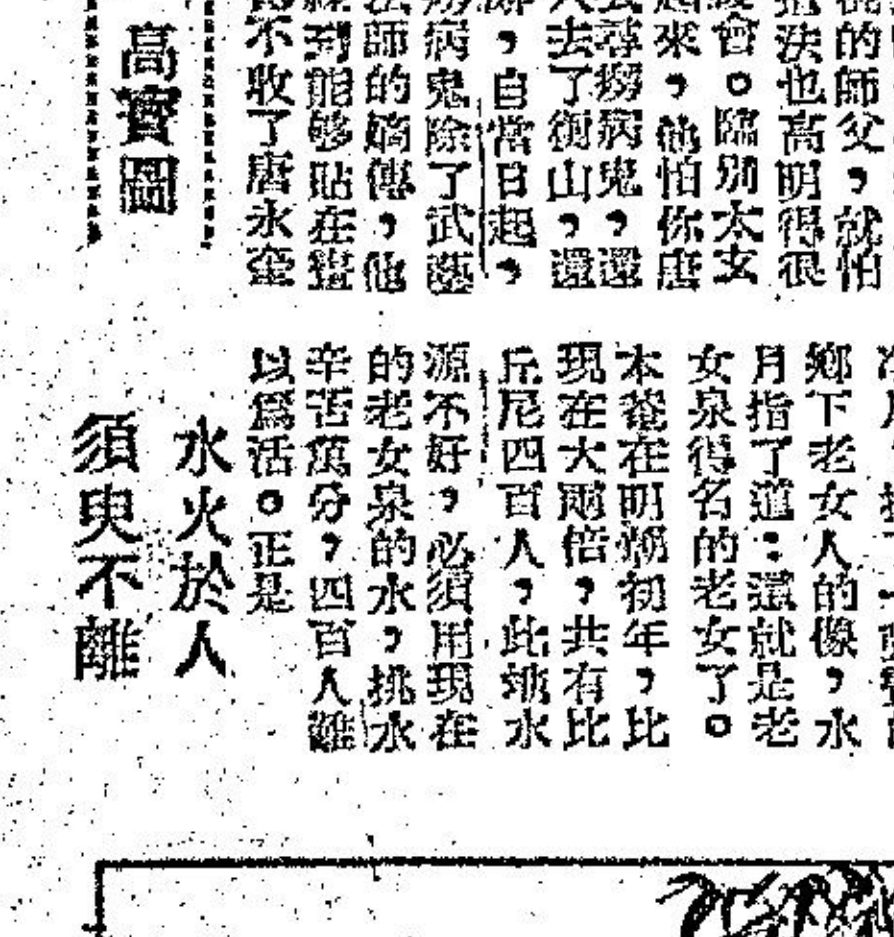 的師父，就怕
也高明得很
會。臨別太玄
來，他怕你唐
尋癆病鬼，還
去了衡山，還
，自當日起，
病鬼除了武藝
師的嫡傳，他
到能够貼在
不收了唐永奎
高寶圖
鄉下老女人的像，水
月指了道：還就是老
女泉得名的老女了。
本菴在明朝初年，比
現在大兩倍，共有比
丘尼四百人，此地水
源不好，必須用現在
的老女泉的水，挑水
辛苦萬分，四百人難
以爲活。正是
水火於人
須臾不離